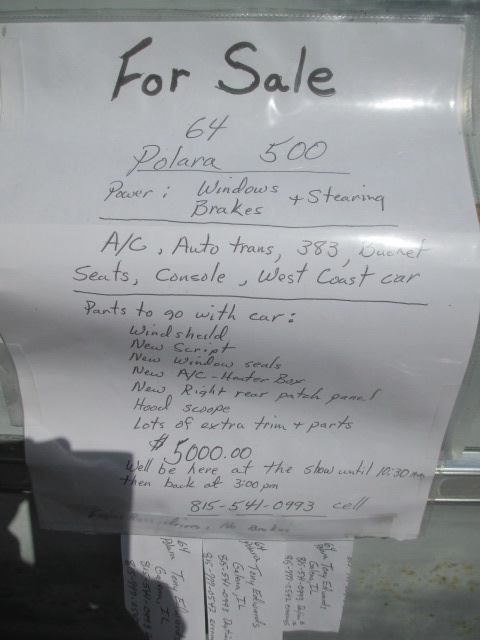 For Sale
64
Polara 500
Power: Windows + Stearing
Brakes
A/C, Auto trans, 383, Bucket
Seats, Console, West Coast car
Parts to go with car:
Windsheild
New Script
New Window seals
New A/C-Heater Box
New Right rear patch panel
Hood scoope
Lots of extra trim + parts
$5000.00
Well be here at the show until 10:30 am
then back at 3:00 pm
815-541-0993 cell
No Brakes
64
Polara
Tony Edwards
Galena, IL
815-541-0993
64
Polara
Tony Edwards
Galena, IL
815-541-0993
64
Polara
Tony Edwards
Galena, IL
815-541-0993